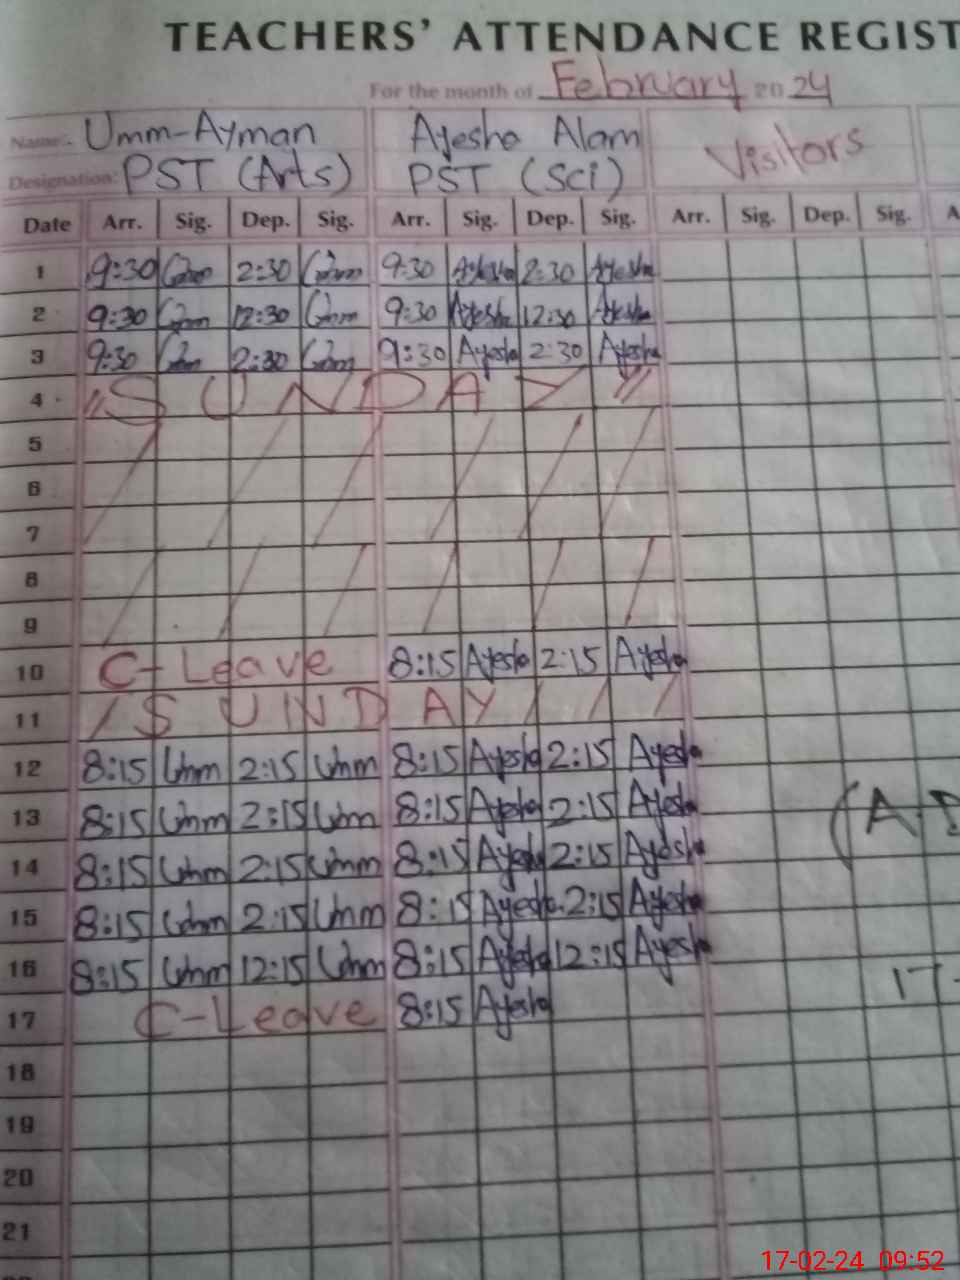 TEACHERS' ATTENDANCE REGIST
For the month of February 2024
Name:- Umm-Ayman Ayesha Alam Visitors
Designation: PST (Arts) PST (Sci)
Date Arr. Sig. Dep. Sig. Arr. Sig. Dep. Sig. Arr. Sig. Dep. Sig. A
1 9:30 Umm 2:30 Umm 9:30 Ayesha 2:30 Ayesha
2 9:30 Umm 12:30 Umm 9:30 Ayesha 12:30 Ayesha
3 9:30 Umm 2:30 Umm 9:30 Ayesha 2:30 Ayesha
4 "SUNDAY"
5
6
7
8
9
10 C-Leave 8:15 Ayesha 2:15 Ayesha
11 SUNDAY
12 8:15 Umm 2:15 Umm 8:15 Ayesha 2:15 Ayesha
13 8:15 Umm 2:15 Umm 8:15 Ayesha 2:15 Ayesha (A.D
14 8:15 Umm 2:15 Umm 8:15 Ayesha 2:15 Ayesha
15 8:15 Umm 2:15 Umm 8:15 Ayesha 2:15 Ayesha
16 8:15 Umm 12:15 Umm 8:15 Ayesha 12:15 Ayesha 17-
17 C-Leave 8:15 Ayesha
18
19
20
21
17-02-24 09:52